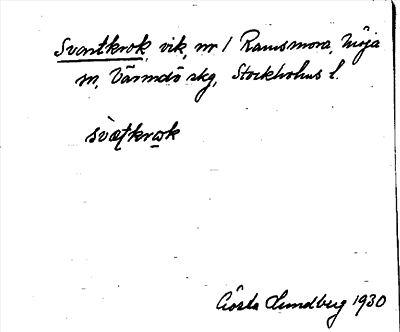 Svartkrok, vik, nr 1 Ramsmora, Möja
sn, Värmdö skg, Stockholms l.
svàt̩krωk
Gösta Lundberg 1930